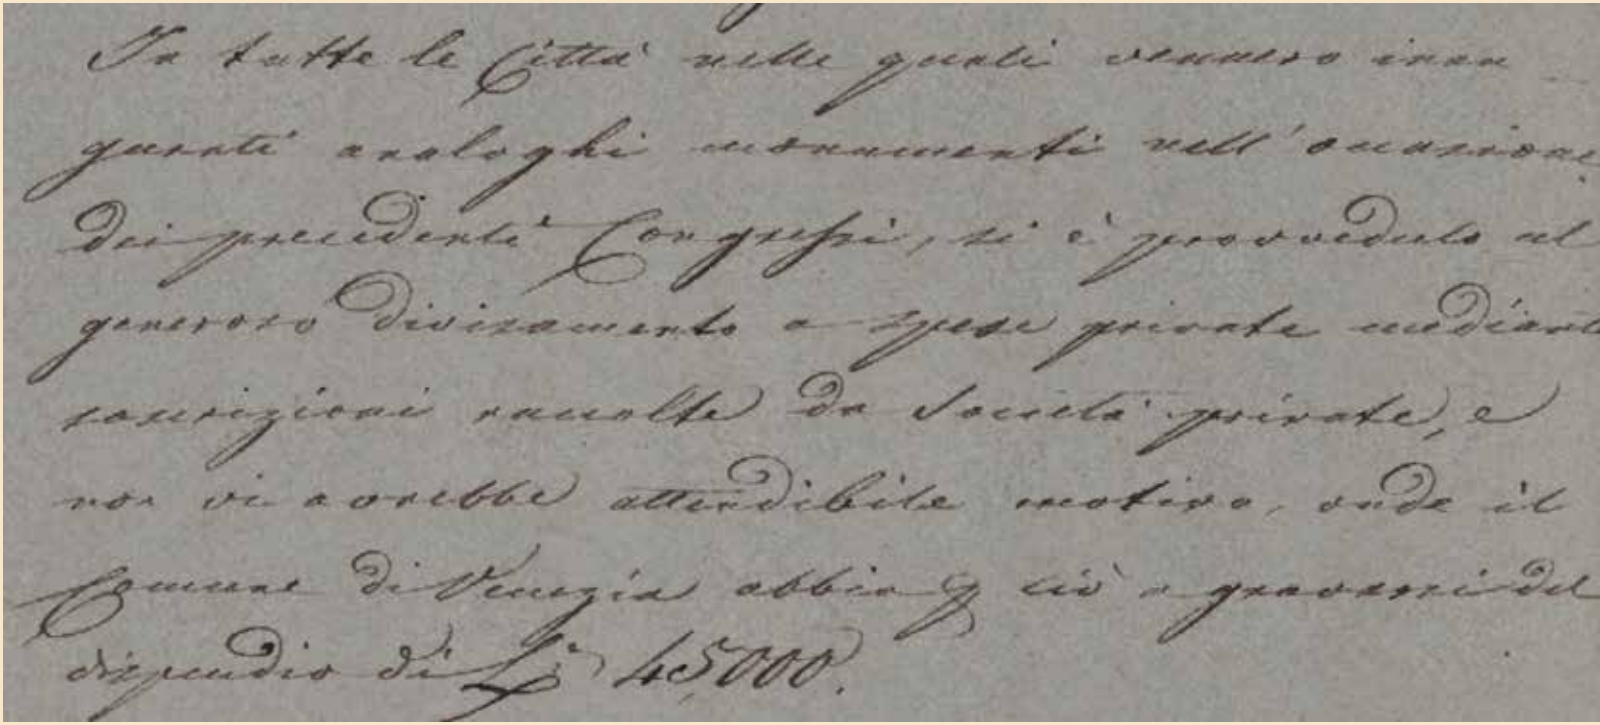 In tutte le Città nelle quali vennero inau
gurati analoghi monumenti nell'occasione
dei precedenti Congressi, si è provveduto al
generoso divisamento a spese private mediante
soscrizioni raccolte da Società private, e
non vi avrebbe attendibile motivo, onde il
Comune di Venezia abbia p ciò a gravarsi del
dispendio di L. 45,000.